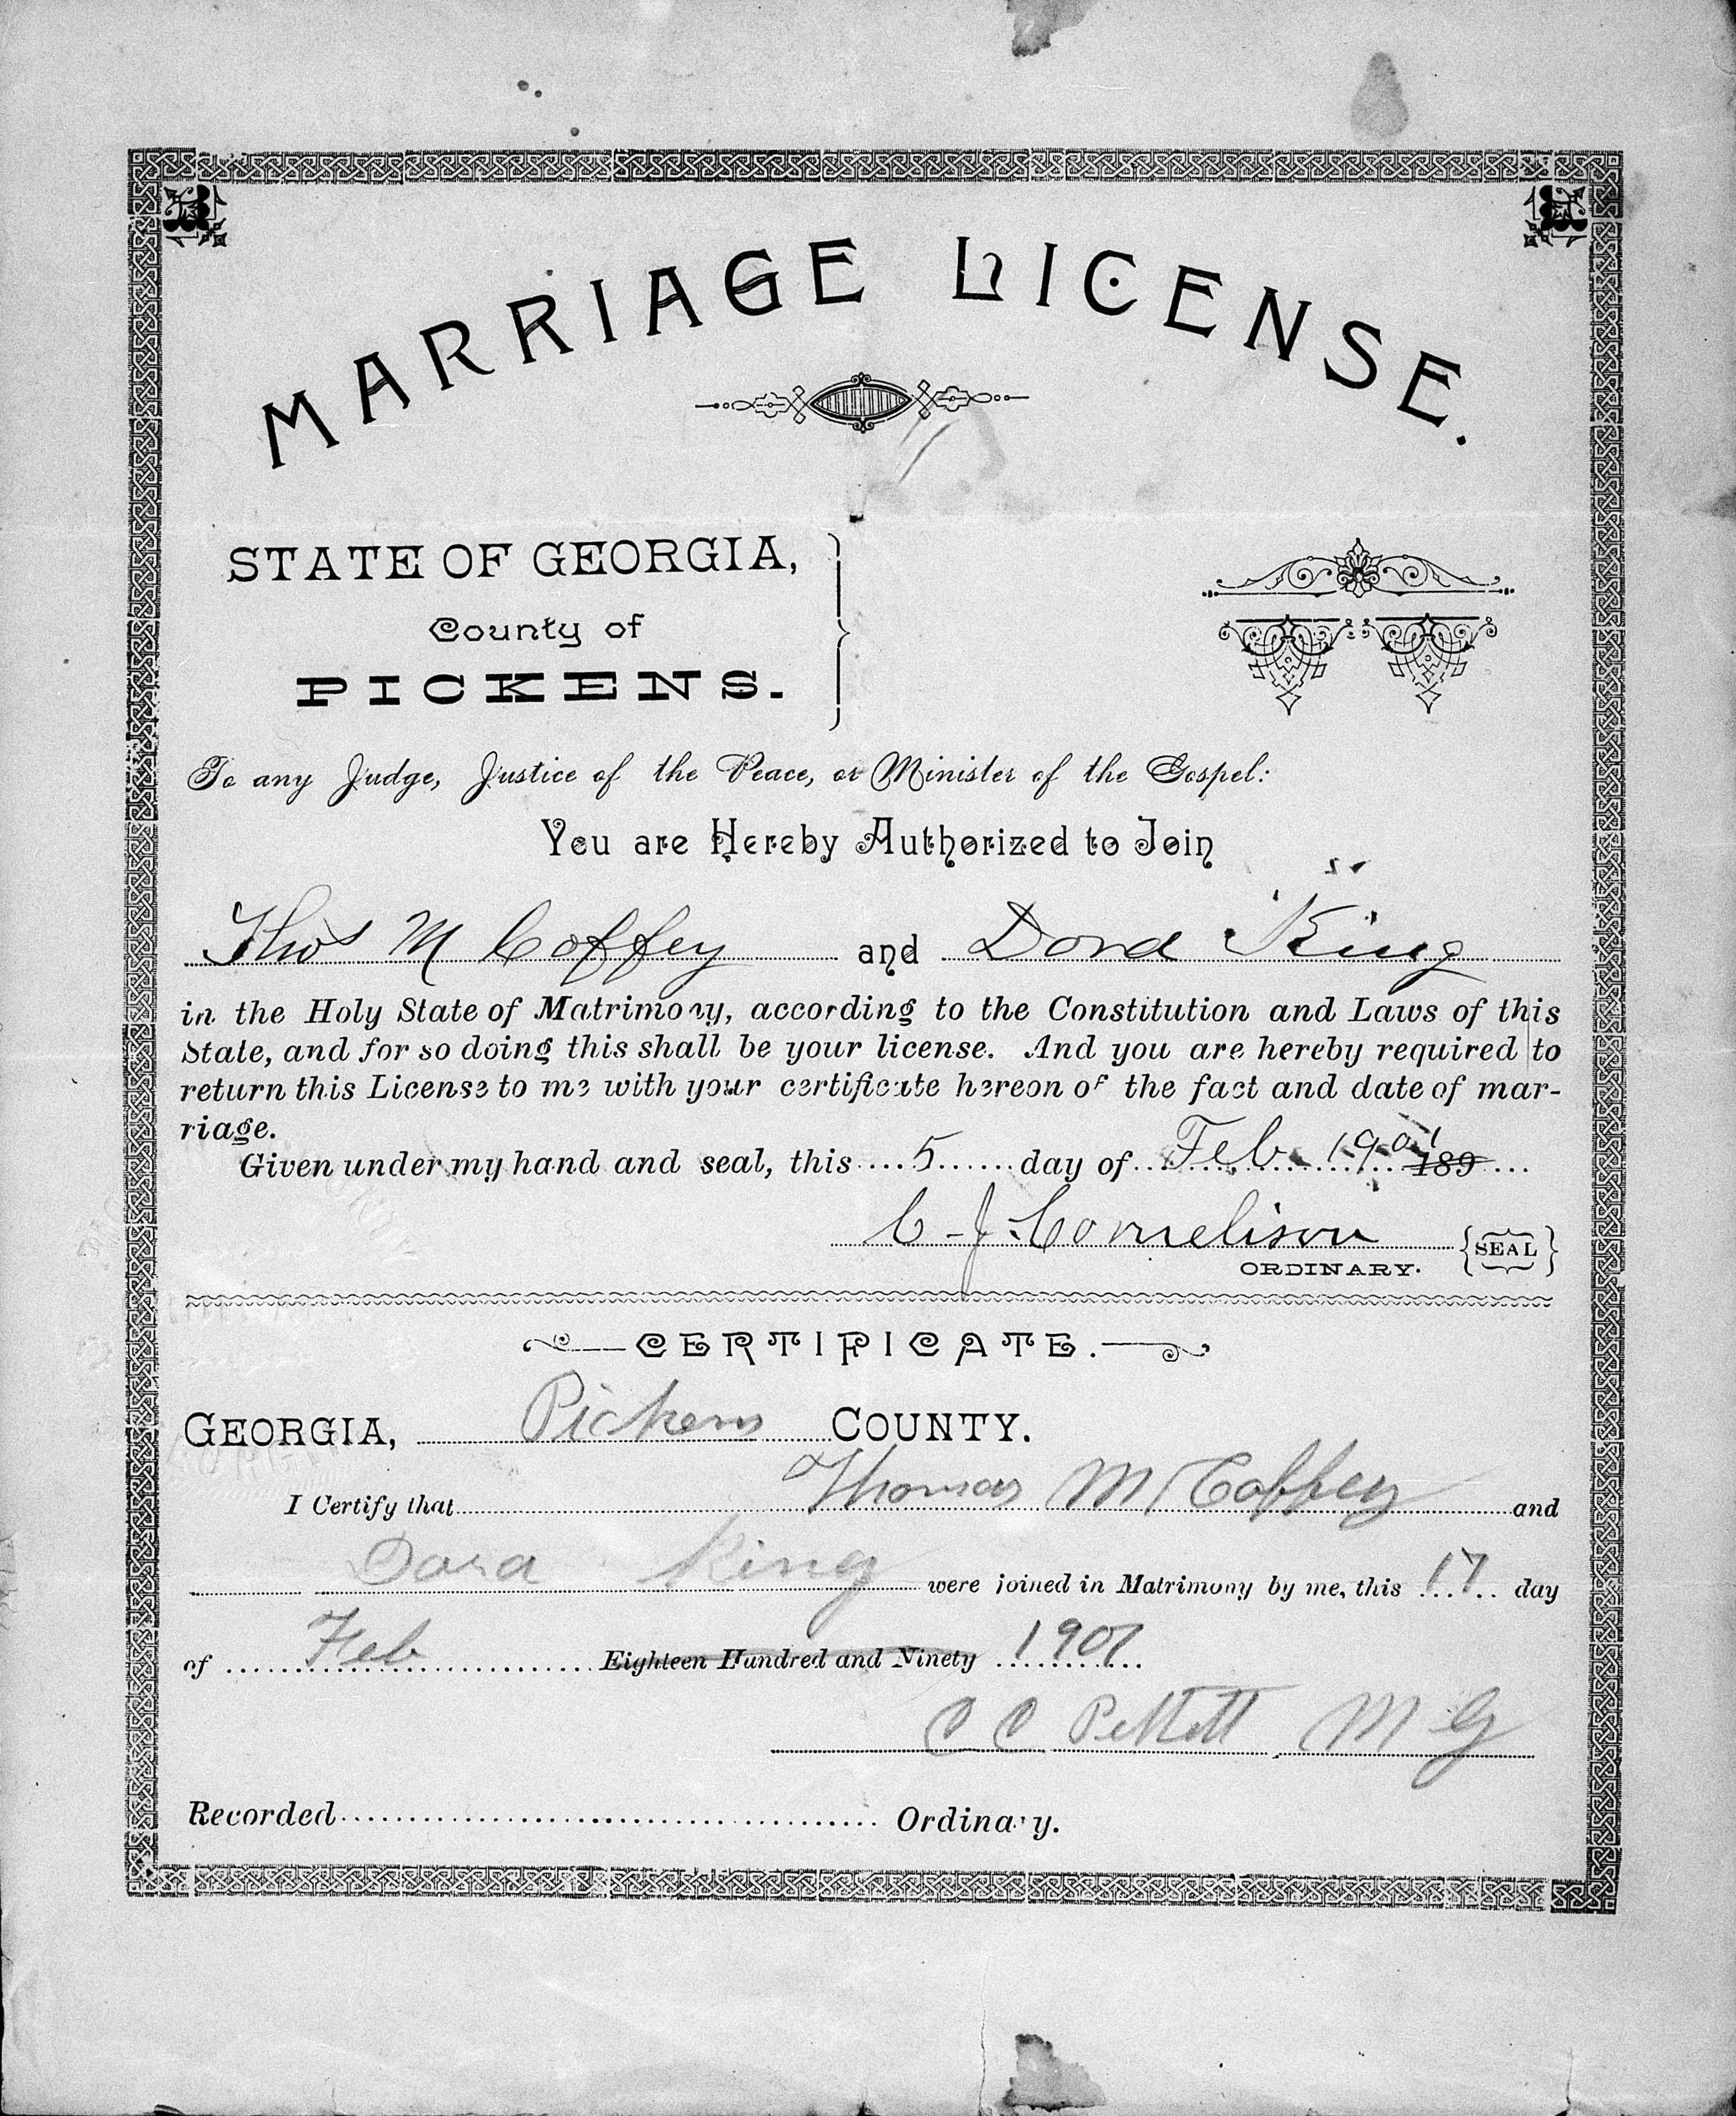 MARRIAGE LICENSE.
STATE OF GEORGIA,
County of
PICKENS.
To any Judge, Justice of the Peace, or Minister of the Gospel:
You are Hereby Authorized to Join
Thos M Coffey and Dora King
in the Holy State of Matrimony, according to the Constitution and Laws of this
State, and for so doing this shall be your license. And you are hereby required to
return this License to me with your certificate hereon of the fact and date of mar-
riage.
Given under my hand and seal, this 5 day of Feb 1901 189
C. J. Cornelison {SEAL}
ORDINARY.
CERTIFICATE.
GEORGIA, Pickens COUNTY.
I Certify that Thomas M Coffey and
Dora King were joined in Matrimony by me, this 17 day
of Feb Eighteen Hundred and Ninety 1901
C C M G
Recorded Ordinary.